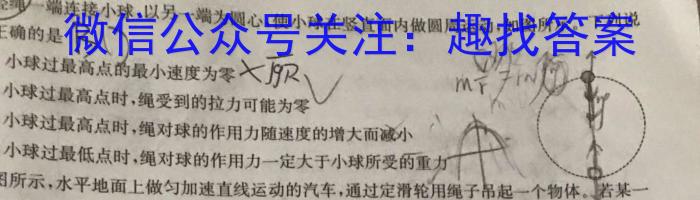 轻绳一端连接小球,以另一端为圆心,使小球在竖直面内做圆周运动,如图所示,下列说
微信公众号关注：趣找答案
正确的是
小球过最高点的最小速度为零
小球过最高点时,绳受到的拉力可能为零
小球过最高点时,绳对球的作用力随速度的增大而减小
小球过最低点时,绳对球的作用力一定大于小球所受的重力
图所示,水平地面上做匀加速直线运动的汽车,通过定滑轮用绳子吊起一个物体。若某一